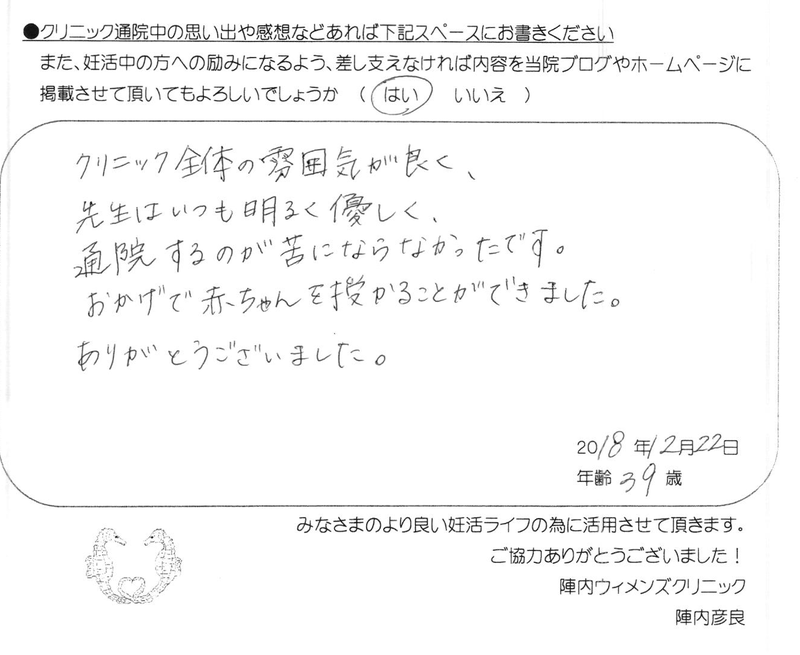 ●クリニック通院中の思い出や感想などあれば下記スペースにお書きください
また、妊活中の方への励みになるよう、差し支えなければ内容を当院ブログやホームページに
掲載させて頂いてもよろしいでしょうか （ はい いいえ ）
クリニック全体の雰囲気が良く、
先生はいつも明るく優しく、
通院するのが苦にならなかったです。
おかげで赤ちゃんを授かることができました。
ありがとうございました。
2018年12月22日
年齢 39 歳
みなさまのより良い妊活ライフの為に活用させて頂きます。
ご協力ありがとうございました！
陣内ウィメンズクリニック
陣内彦良